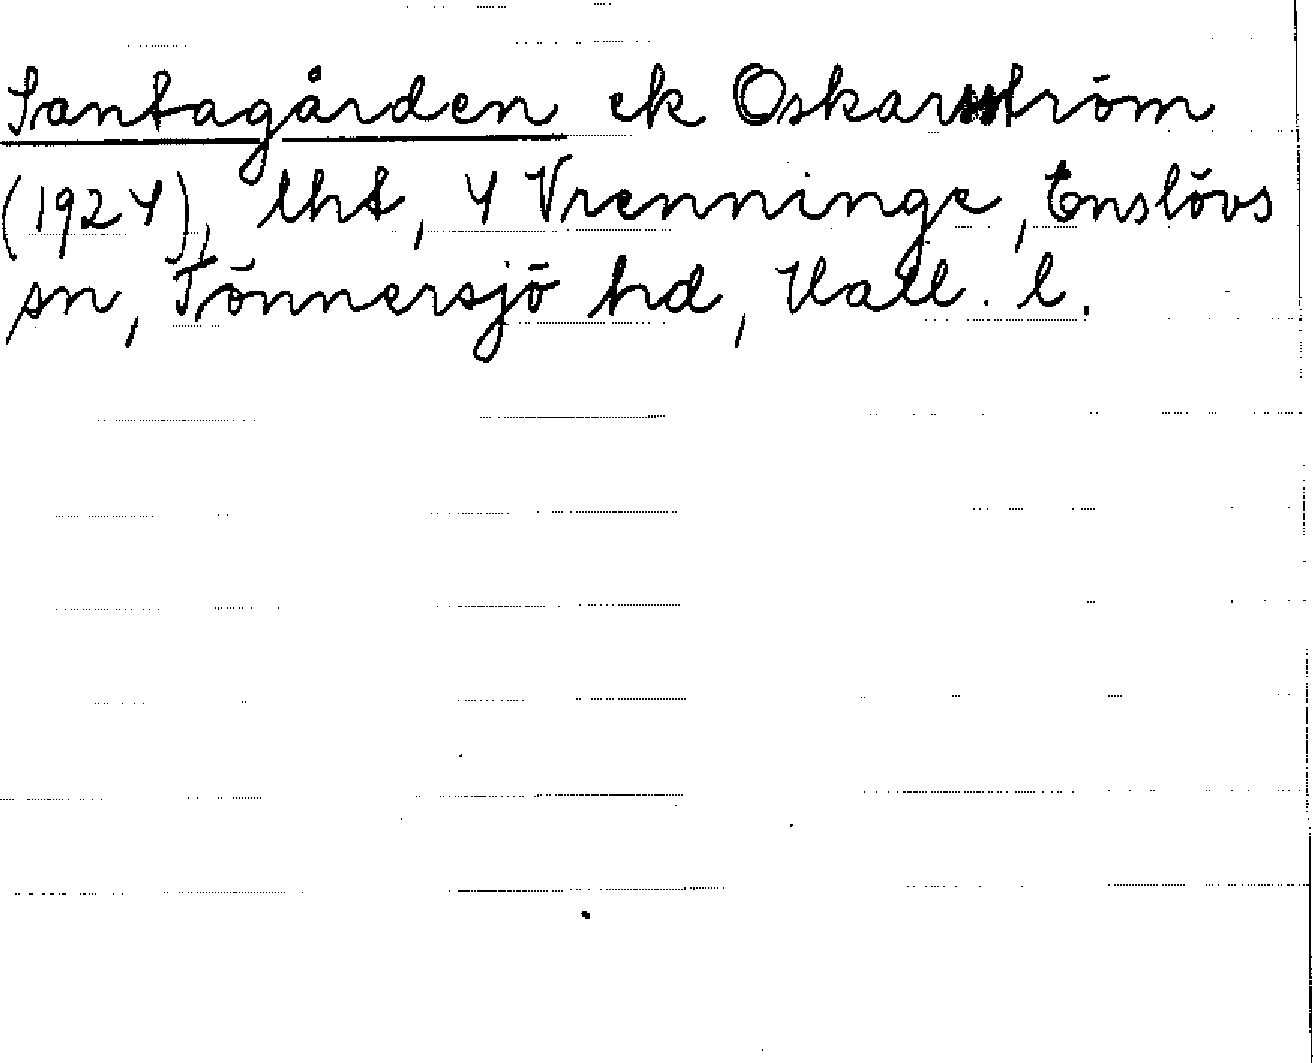 Santagården ek Oskarström
(1924), lht, 4 Vrenninge, Enslövs
sn, Tönnersjö hd, Hall. l.